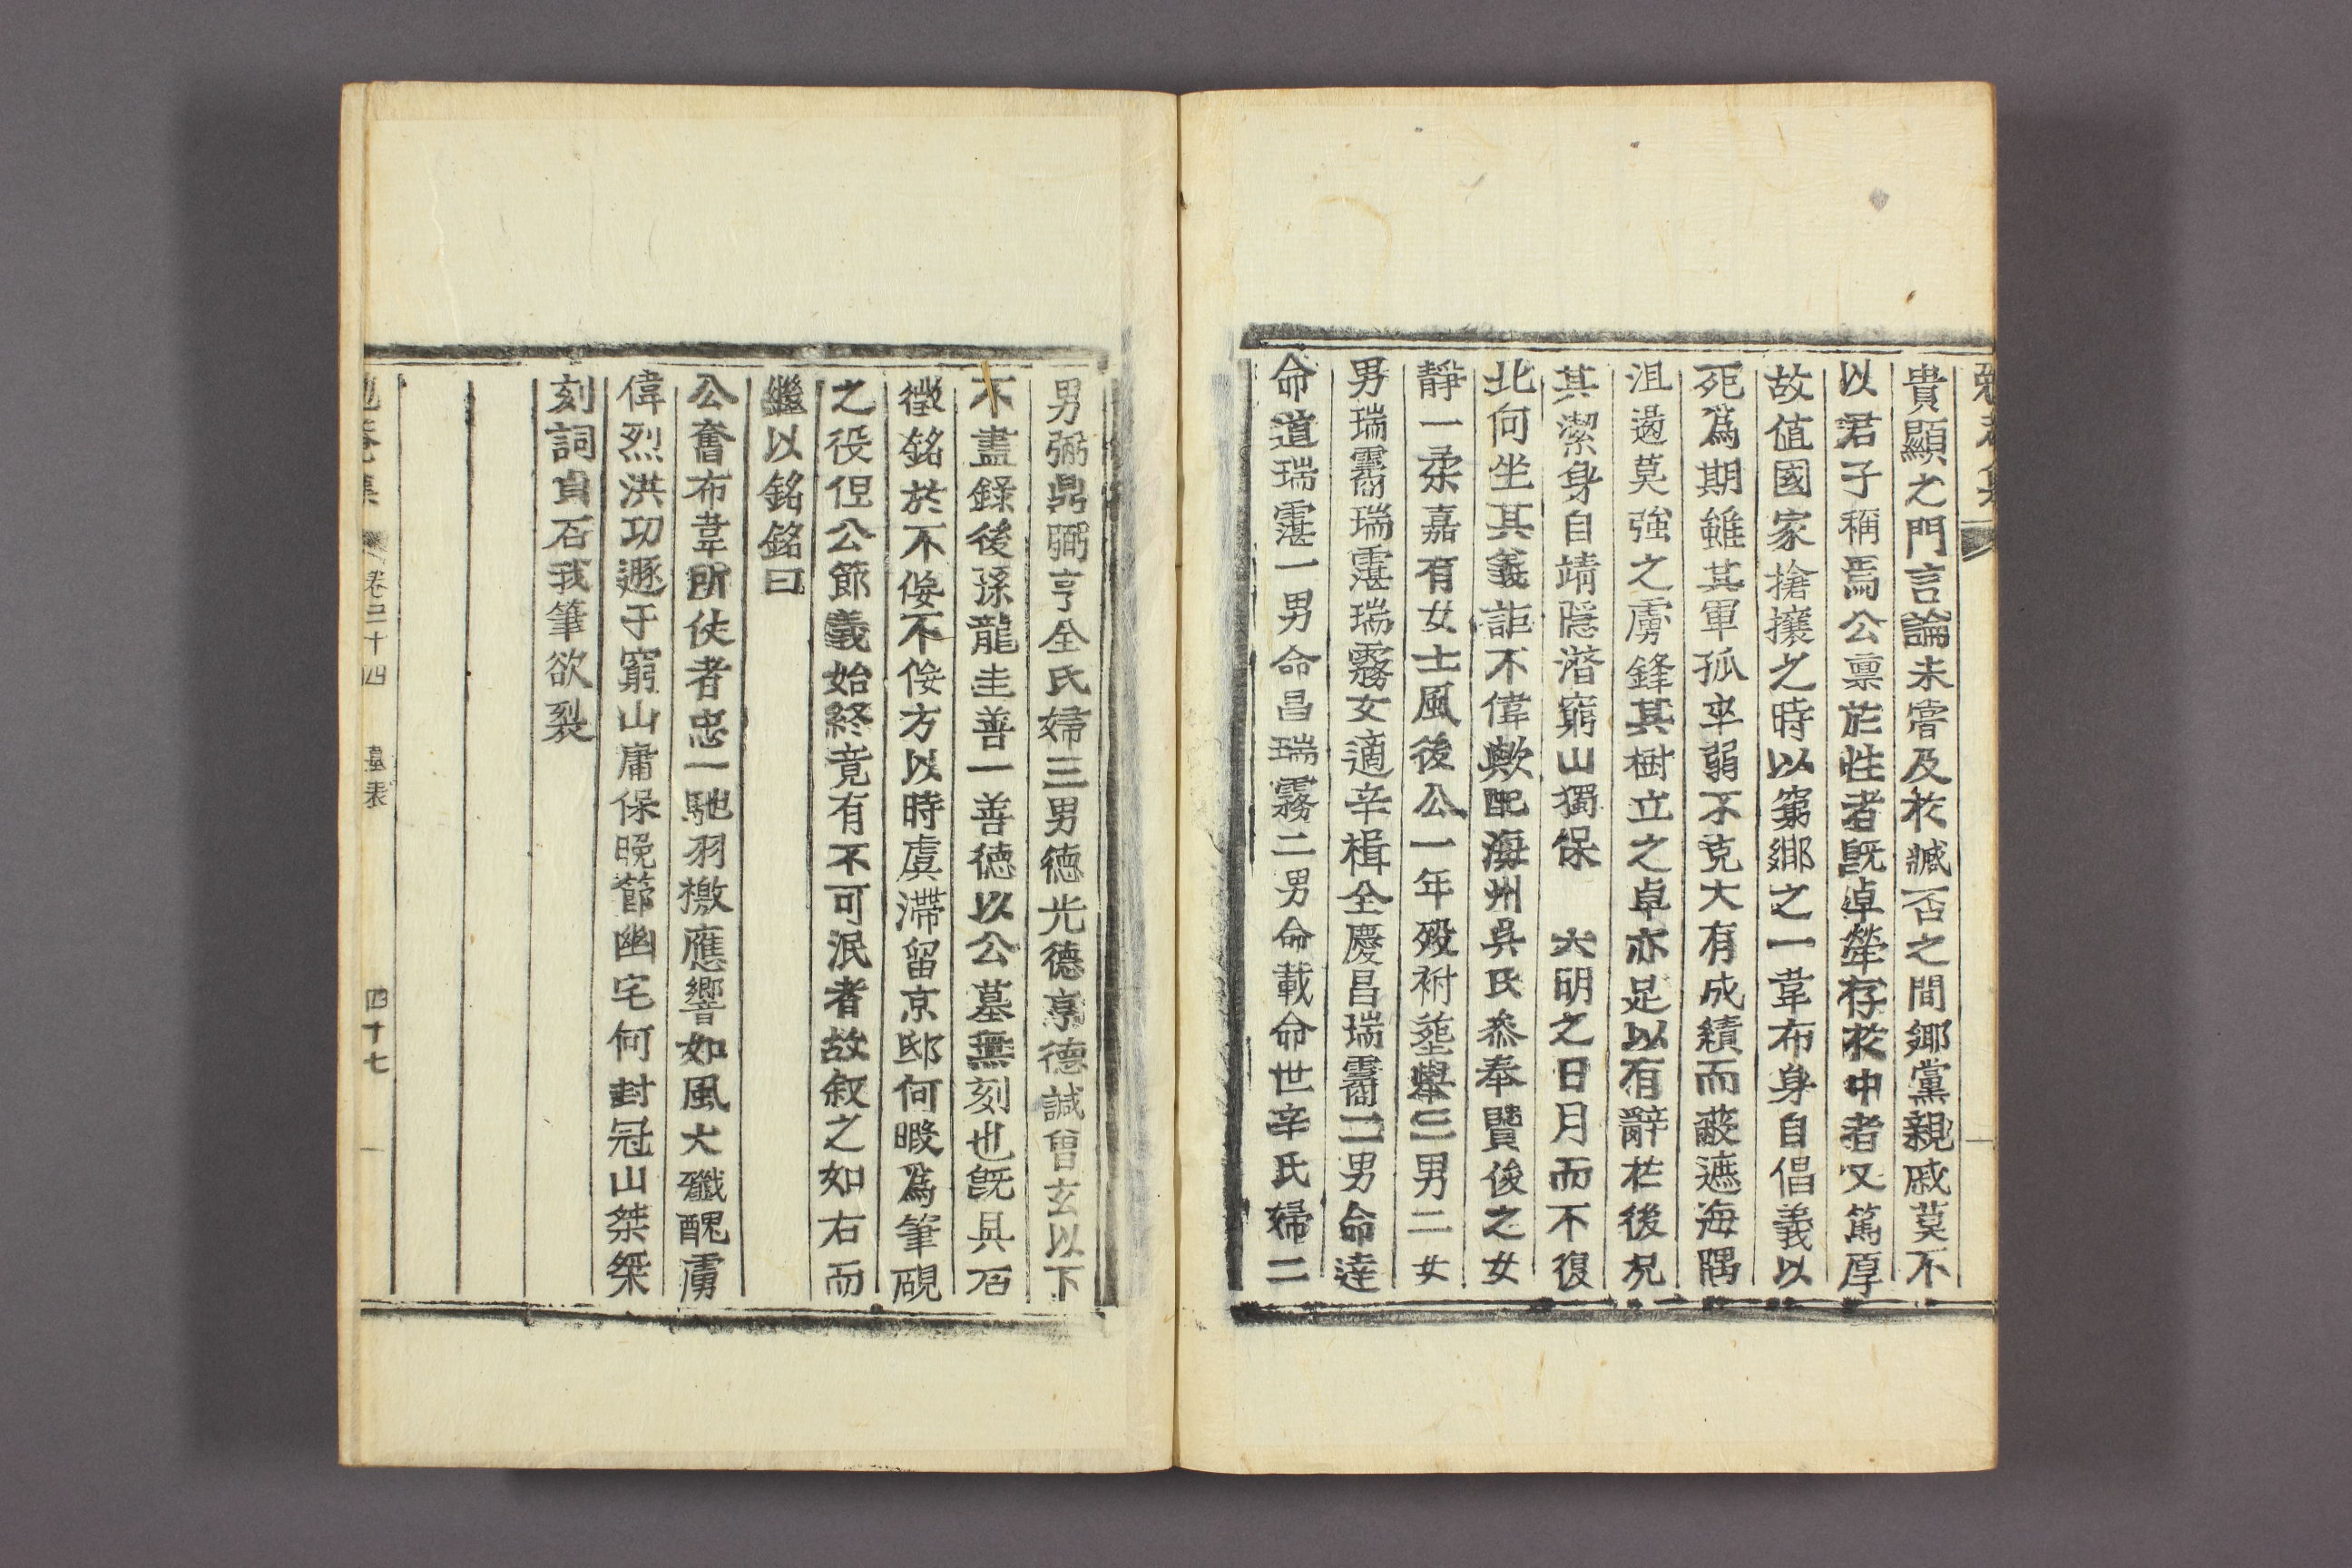 貴顯之門言論未嘗及於臧否之間鄉黨親戚莫不
以君子稱焉公禀於性者旣卓犖存於中者又篤厚
故值國家搶攘之時以窮鄉之一韋布身自倡義以
死爲期雖其軍孤卒弱不克大有成績而蔽遮海隅
沮遏莫強之虜鋒其樹立之卓亦足以有辭於後况
其潔身自靖隱潛窮山獨保 大明之日月而不復
北向坐其義詎不偉歟配海州吳氏叅奉贇俊之女
靜一柔嘉有女士風後公一年歿祔塟擧三男二女
男瑞霱瑞霮瑞霧女適辛楫全慶昌瑞霱二男命達
命道瑞霮一男命昌瑞霧二男命載命世辛氏婦二
男弼鼎弼亨全氏婦三男德光德亨德誠曾玄以下
不盡錄後孫龍圭善一善德以公墓無刻也旣具石
徵銘於不佞不佞方以時虞滯留京邸何暇爲筆硯
之役但公節義始終竟有不可泯者故叙之如右而
繼以銘銘曰
公奮布韋所仗者忠一馳羽檄應響如風大殲醜虜
偉烈洪功遯于窮山庸保晩節幽宅何封冠山桀桀
刻詞貞石我筆欲裂
卷三十四 墓表 四十七